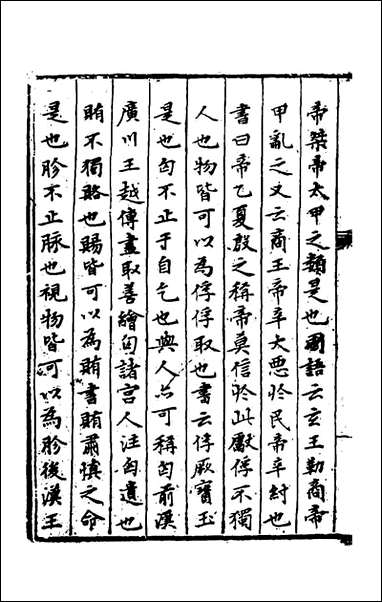 帝桀帝太甲之類是也國語云玄王勤商帝
甲亂之又云商王帝辛大惡於民帝辛紂也
書曰帝乙夏殷之稱帝莫信於此獻俘不獨
人也物皆可以為俘俘取也書云俘厥寶玉
是也匄不止于自乞也與人亦可稱匄前漢
廣川王越傳盡取善繒匄諸宮人注匄遺也
賄不獨賂也賜皆可以為賄書賄肅慎之命
是也診不止脉也視物皆可以為診後漢王